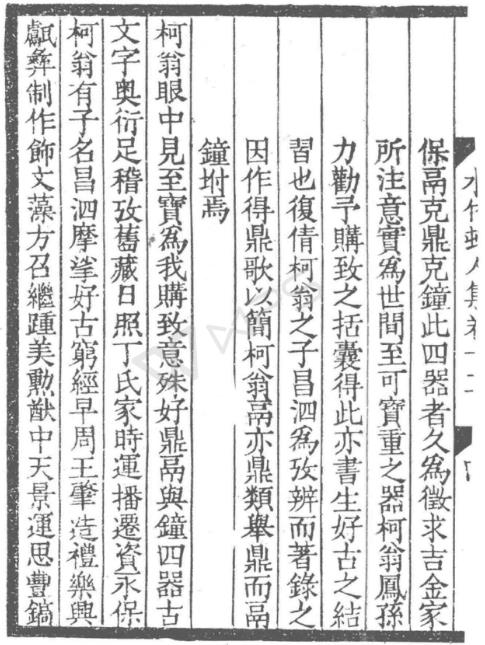 保鬲克鼎克鐘此四器者久為徵求吉金家
所注意實為世間至可寶重之器柯翁鳳孫
力勸予購致之括囊得此亦書生好古之結
習也復倩柯翁之子昌泗為攷辨而著錄之
因作得鼎歌以簡柯翁鬲亦鼎類舉鼎而鬲
鐘坿焉
柯翁眼中見至寶為我購致意殊好鼎鬲與鐘四器古
文字奧衍足稽攷舊藏日照丁氏家時運播遷資永保
柯翁有子名昌泗摩挲好古窮經早周王肇造禮樂興
甗彝制作飾文藻方召繼踵美勳猷中天景運思豐鎬